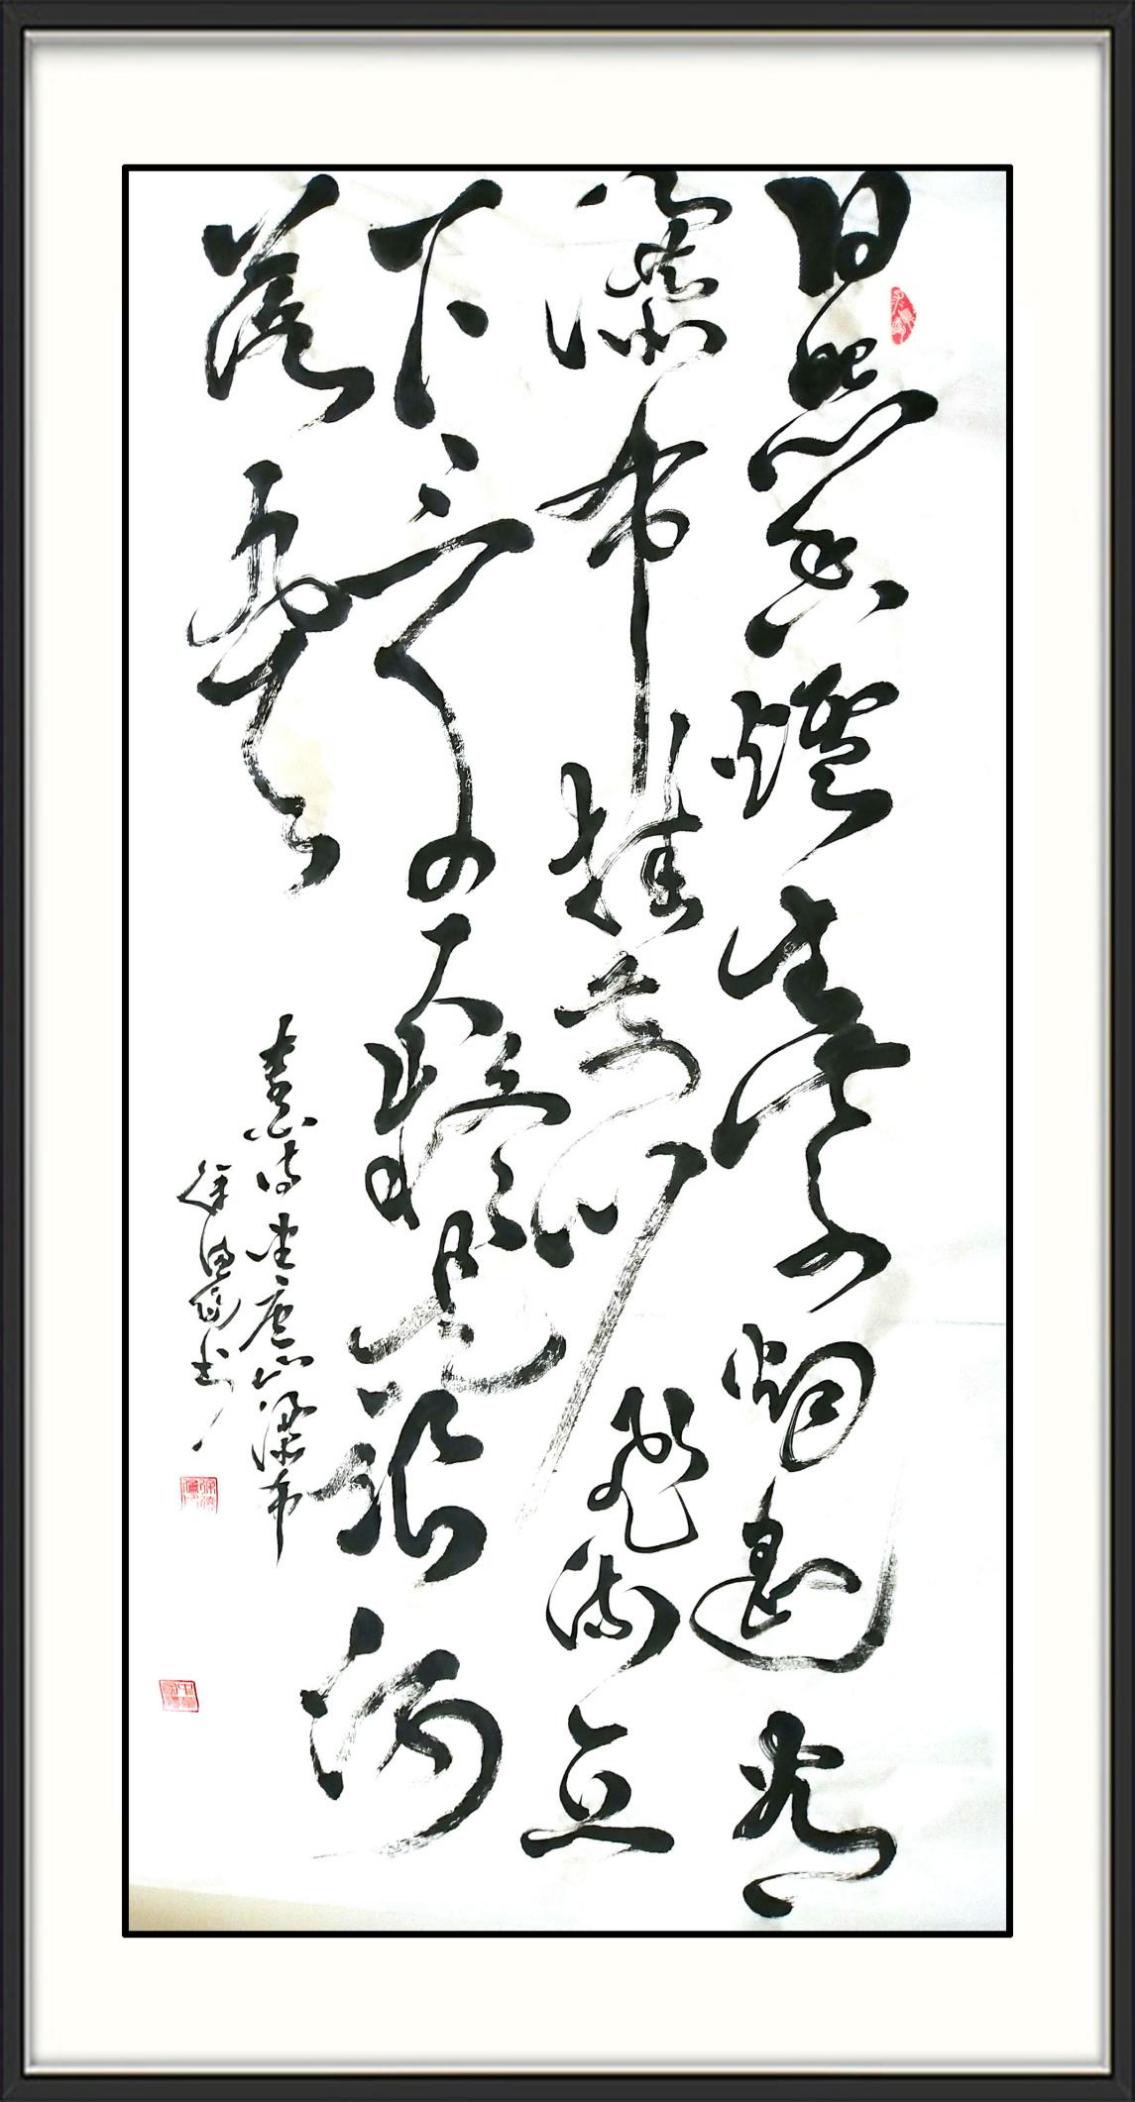 日照香爐生紫烟遥看
瀑布挂前川飞流直
下三千尺疑是银河
落九天
李白诗望庐山瀑布
徐
书